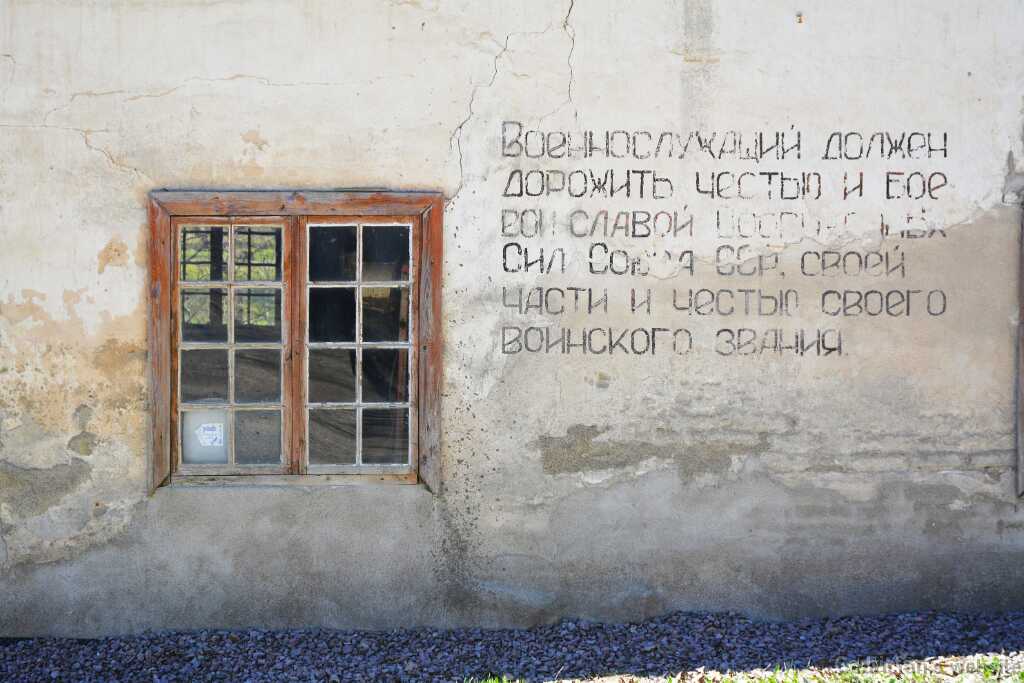 Военнослужащий должен
дорожить честью и бое
вой славой Вооруженных
Сил Союза ССР, своей
части и честью своего
воинского звания.